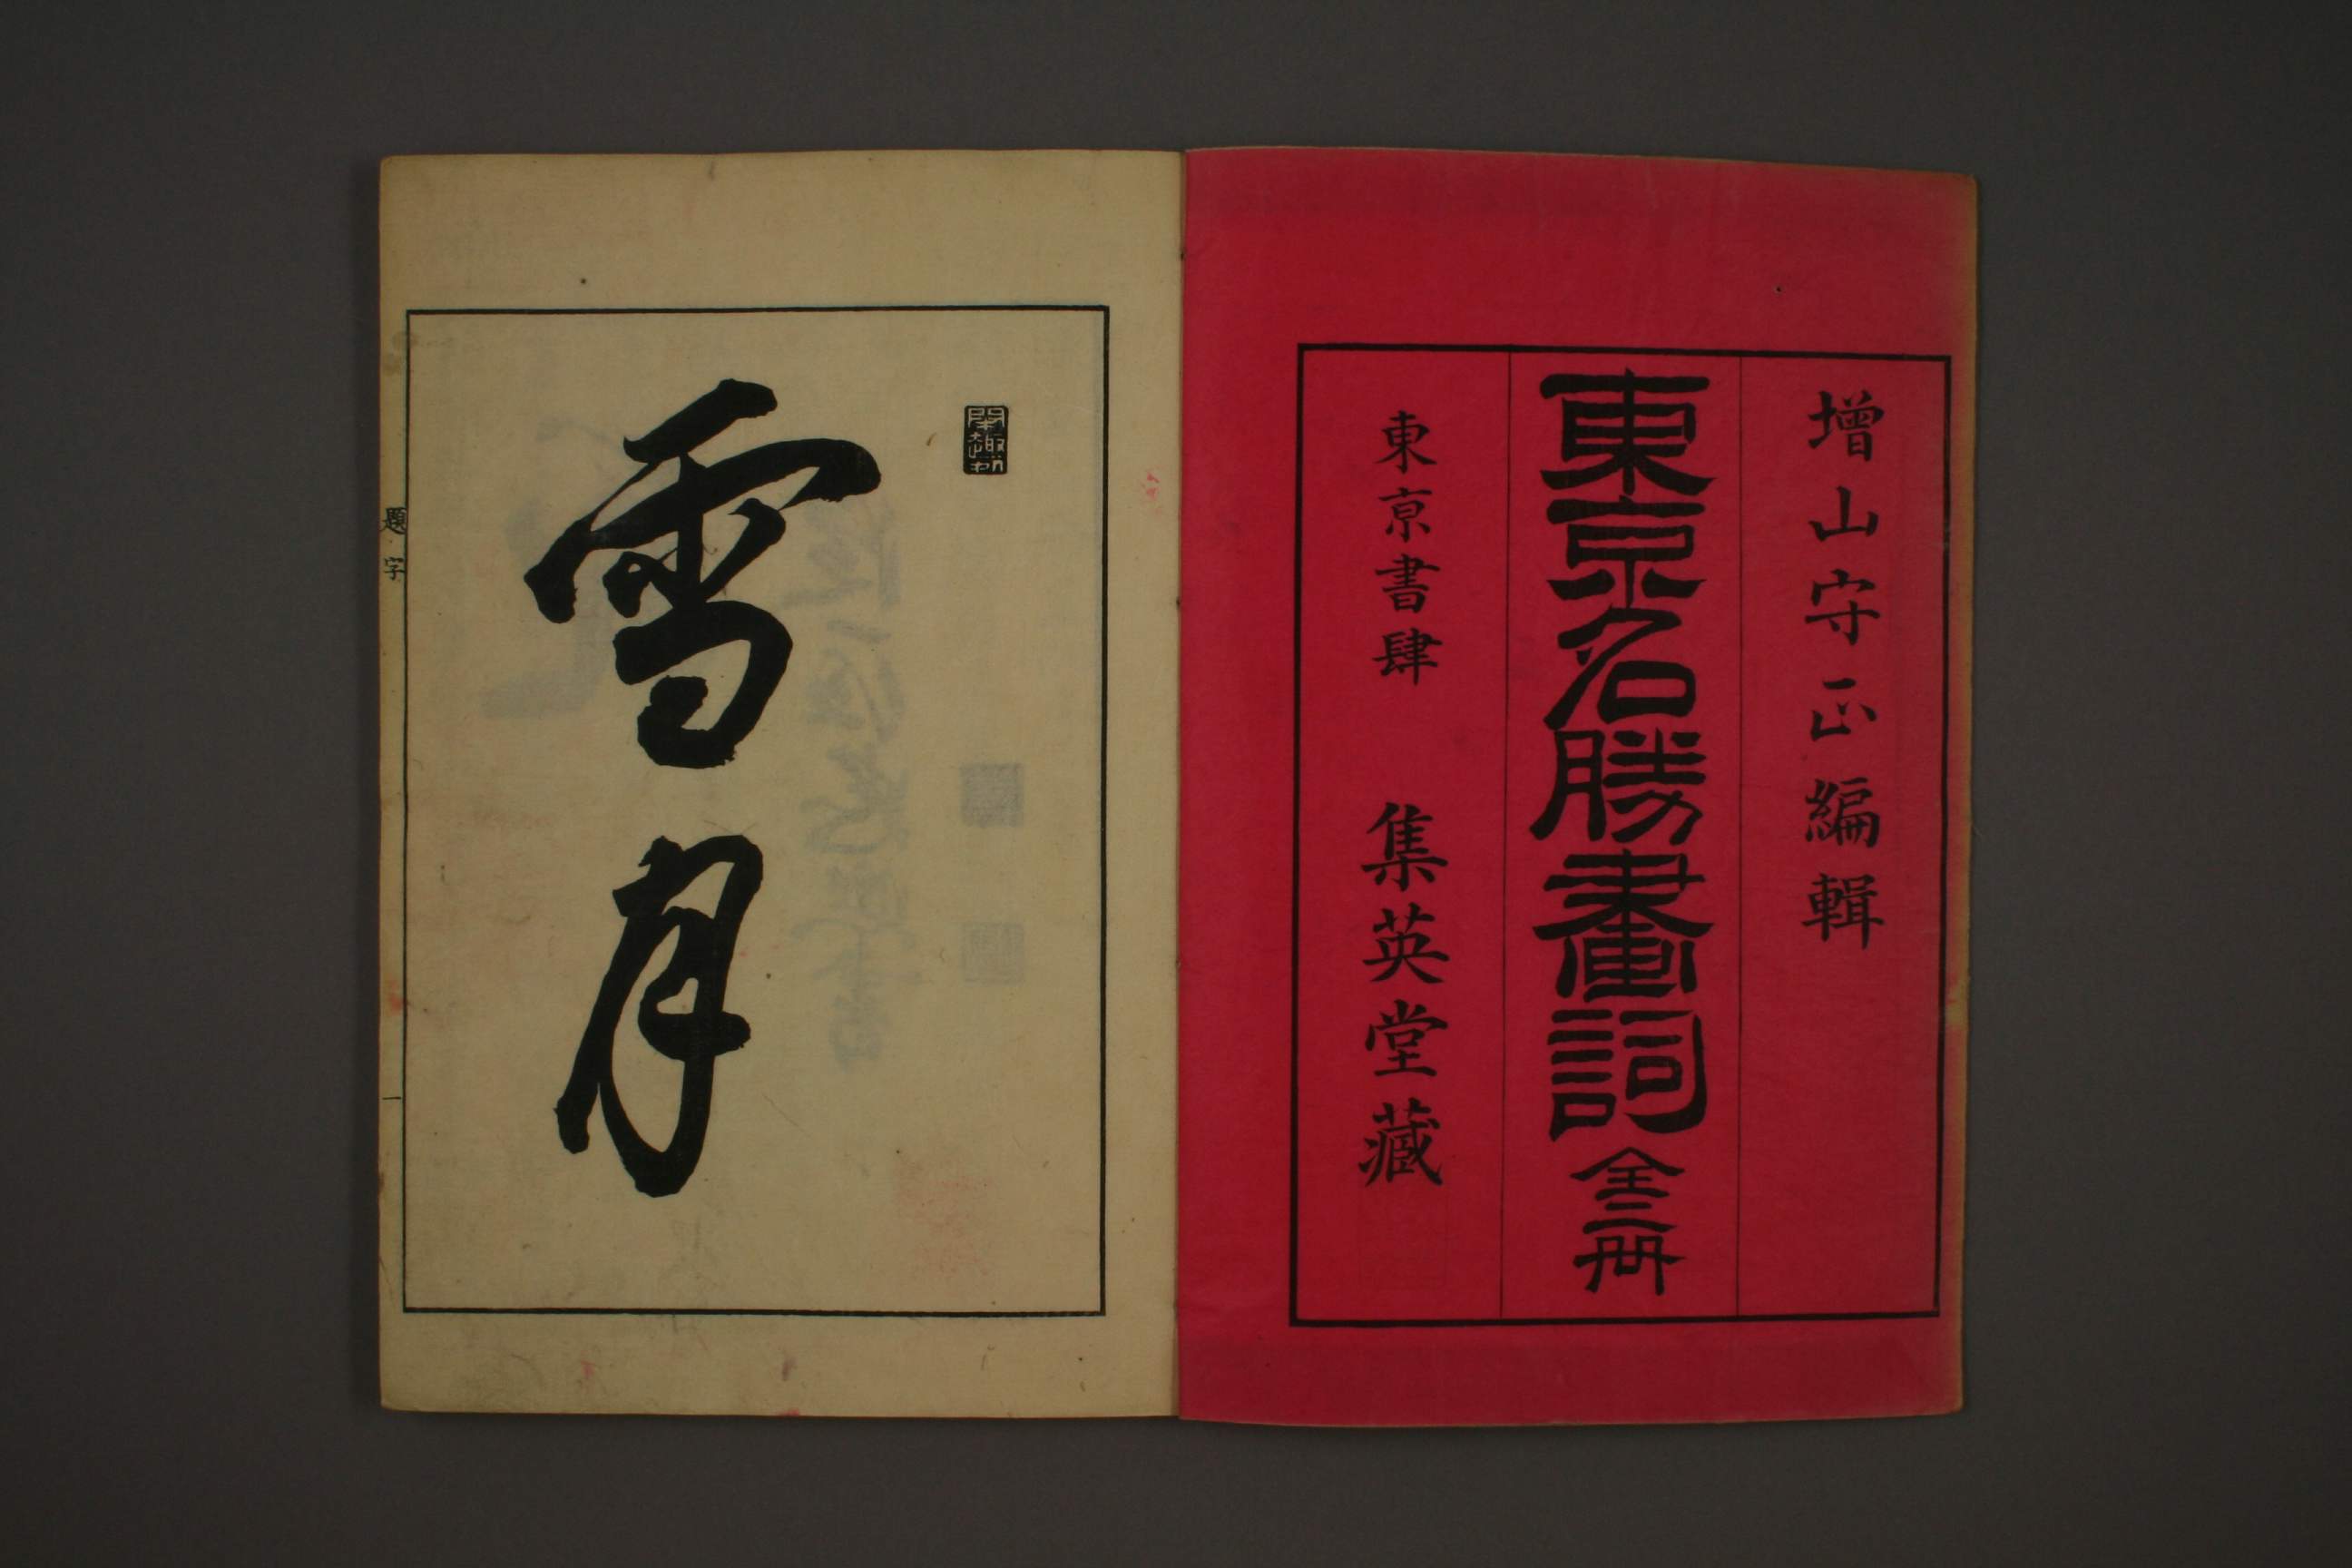 增山守正編輯
東京名勝畫詞 全二冊
東京書肆 集英堂藏
雪月
題字 一